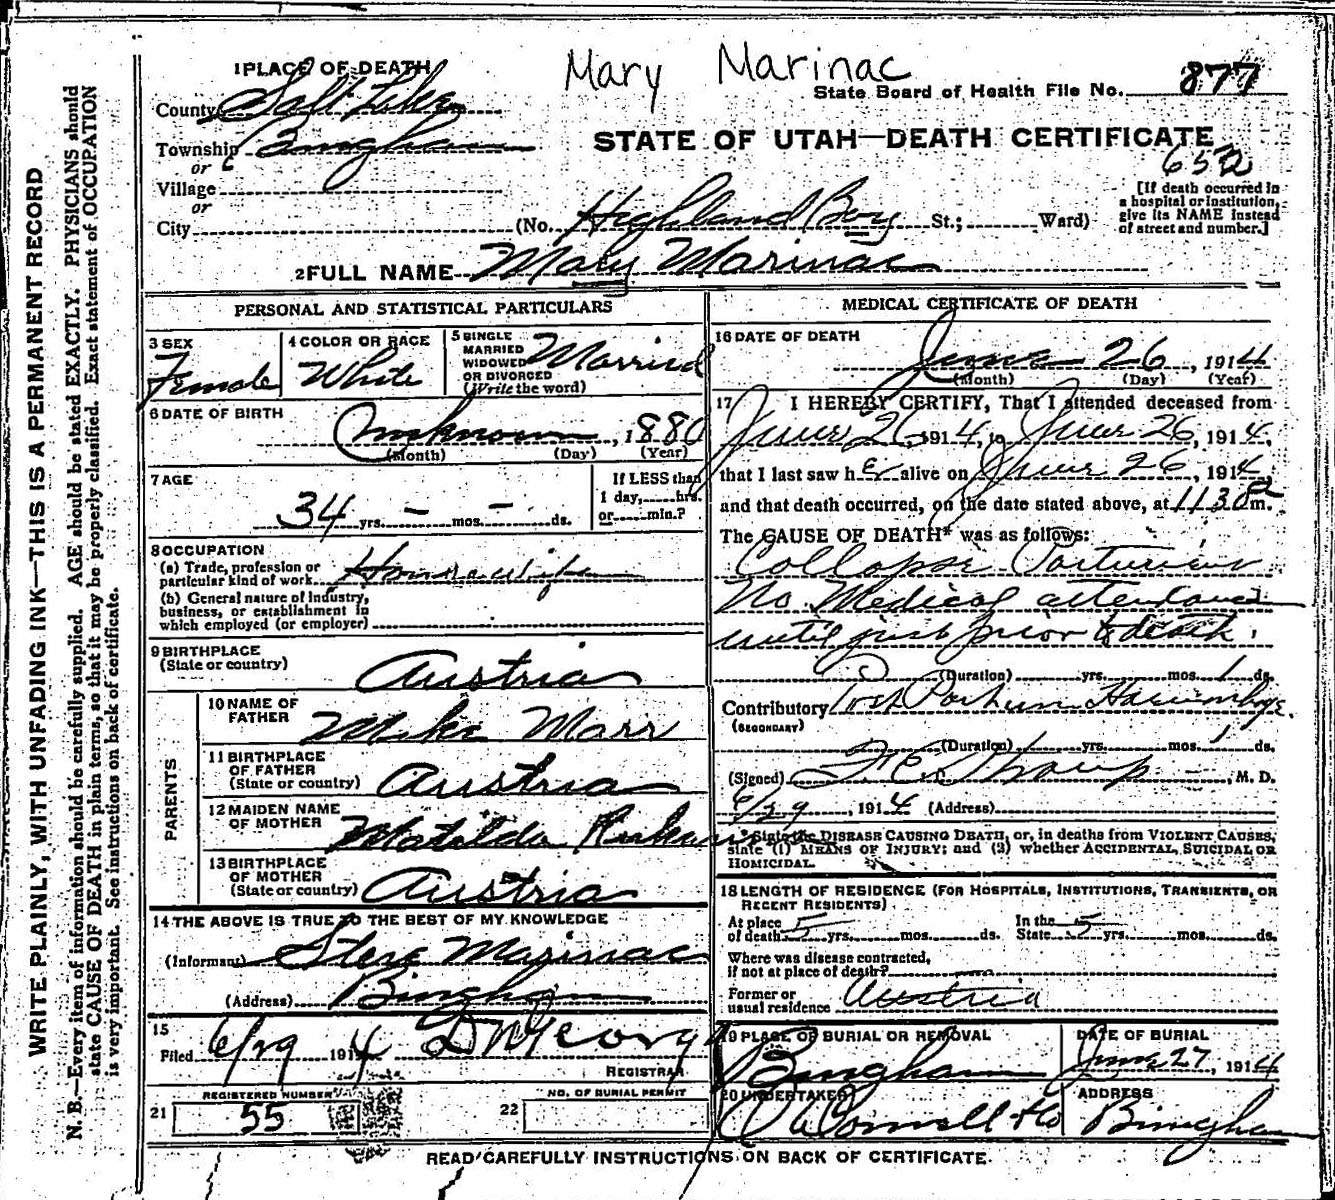 Mary Marinac
1 PLACE OF DEATH
State Board of Health File No. 877
County Salt Lake
STATE OF UTAH—DEATH CERTIFICATE
Township Bingham
or
652
Village
or
[If death occurred in a hospital or institution, give its NAME instead of street and number.]
City (No. Highland Boy St.; Ward)
2 FULL NAME Mary Marinac
PERSONAL AND STATISTICAL PARTICULARS
3 SEX
Female
4 COLOR OR RACE
White
5 SINGLE
MARRIED
WIDOWED
OR DIVORCED
(Write the word)
Married
6 DATE OF BIRTH
Unknown, 1880
(Month) (Day) (Year)
7 AGE
34 yrs. - mos. - ds.
If LESS than
1 day, hrs.
or min.?
8 OCCUPATION
(a) Trade, profession or
particular kind of work Housewife
(b) General nature of Industry,
business, or establishment in
which employed (or employer)
9 BIRTHPLACE
(State or country)
Austria
PARENTS
10 NAME OF
FATHER
Mike Marr
11 BIRTHPLACE
OF FATHER
(State or country)
Austria
12 MAIDEN NAME
OF MOTHER
Matilda
13 BIRTHPLACE
OF MOTHER
(State or country)
Austria
14 THE ABOVE IS TRUE TO THE BEST OF MY KNOWLEDGE
(Informant) Steve Marinac
(Address) Bingham
15
Filed 6/29 1914
REGISTRAR
21 REGISTERED NUMBER
55
22 NO. OF BURIAL PERMIT
MEDICAL CERTIFICATE OF DEATH
16 DATE OF DEATH
June 26, 1914
(Month) (Day) (Year)
17 I HEREBY CERTIFY, That I attended deceased from
June 26, 1914, to June 26, 1914,
that I last saw her alive on June 26, 1914,
and that death occurred, on the date stated above, at 1130 a m.
The CAUSE OF DEATH* was as follows:
Collapse
No Medical attendance
until just prior to death.
(Duration) yrs. mos. 1 ds.
Contributory Post Partum
(SECONDARY)
(Duration) yrs. mos. 1 ds.
(Signed) M. D.
6/29, 1914 (Address)
*State the DISEASE CAUSING DEATH, or, in deaths from VIOLENT CAUSES,
state (1) MEANS OF INJURY; and (2) whether ACCIDENTAL, SUICIDAL OR
HOMICIDAL.
18 LENGTH OF RESIDENCE (FOR HOSPITALS, INSTITUTIONS, TRANSIENTS, OR
RECENT RESIDENTS)
At place
of death 5 yrs. mos. ds.
In the
State 5 yrs. mos. ds.
Where was disease contracted,
if not at place of death?
Former or
usual residence Austria
19 PLACE OF BURIAL OR REMOVAL
Bingham
DATE OF BURIAL
June 27, 1914
20 UNDERTAKER
O'Donnell & Co
ADDRESS
Bingham
READ CAREFULLY INSTRUCTIONS ON BACK OF CERTIFICATE.
WRITE PLAINLY, WITH UNFADING INK—THIS IS A PERMANENT RECORD
N. B.—Every item of information should be carefully supplied. AGE should be stated EXACTLY. PHYSICIANS should
state CAUSE OF DEATH in plain terms, so that it may be properly classified. Exact statement of OCCUPATION
is very important. See instructions on back of certificate.